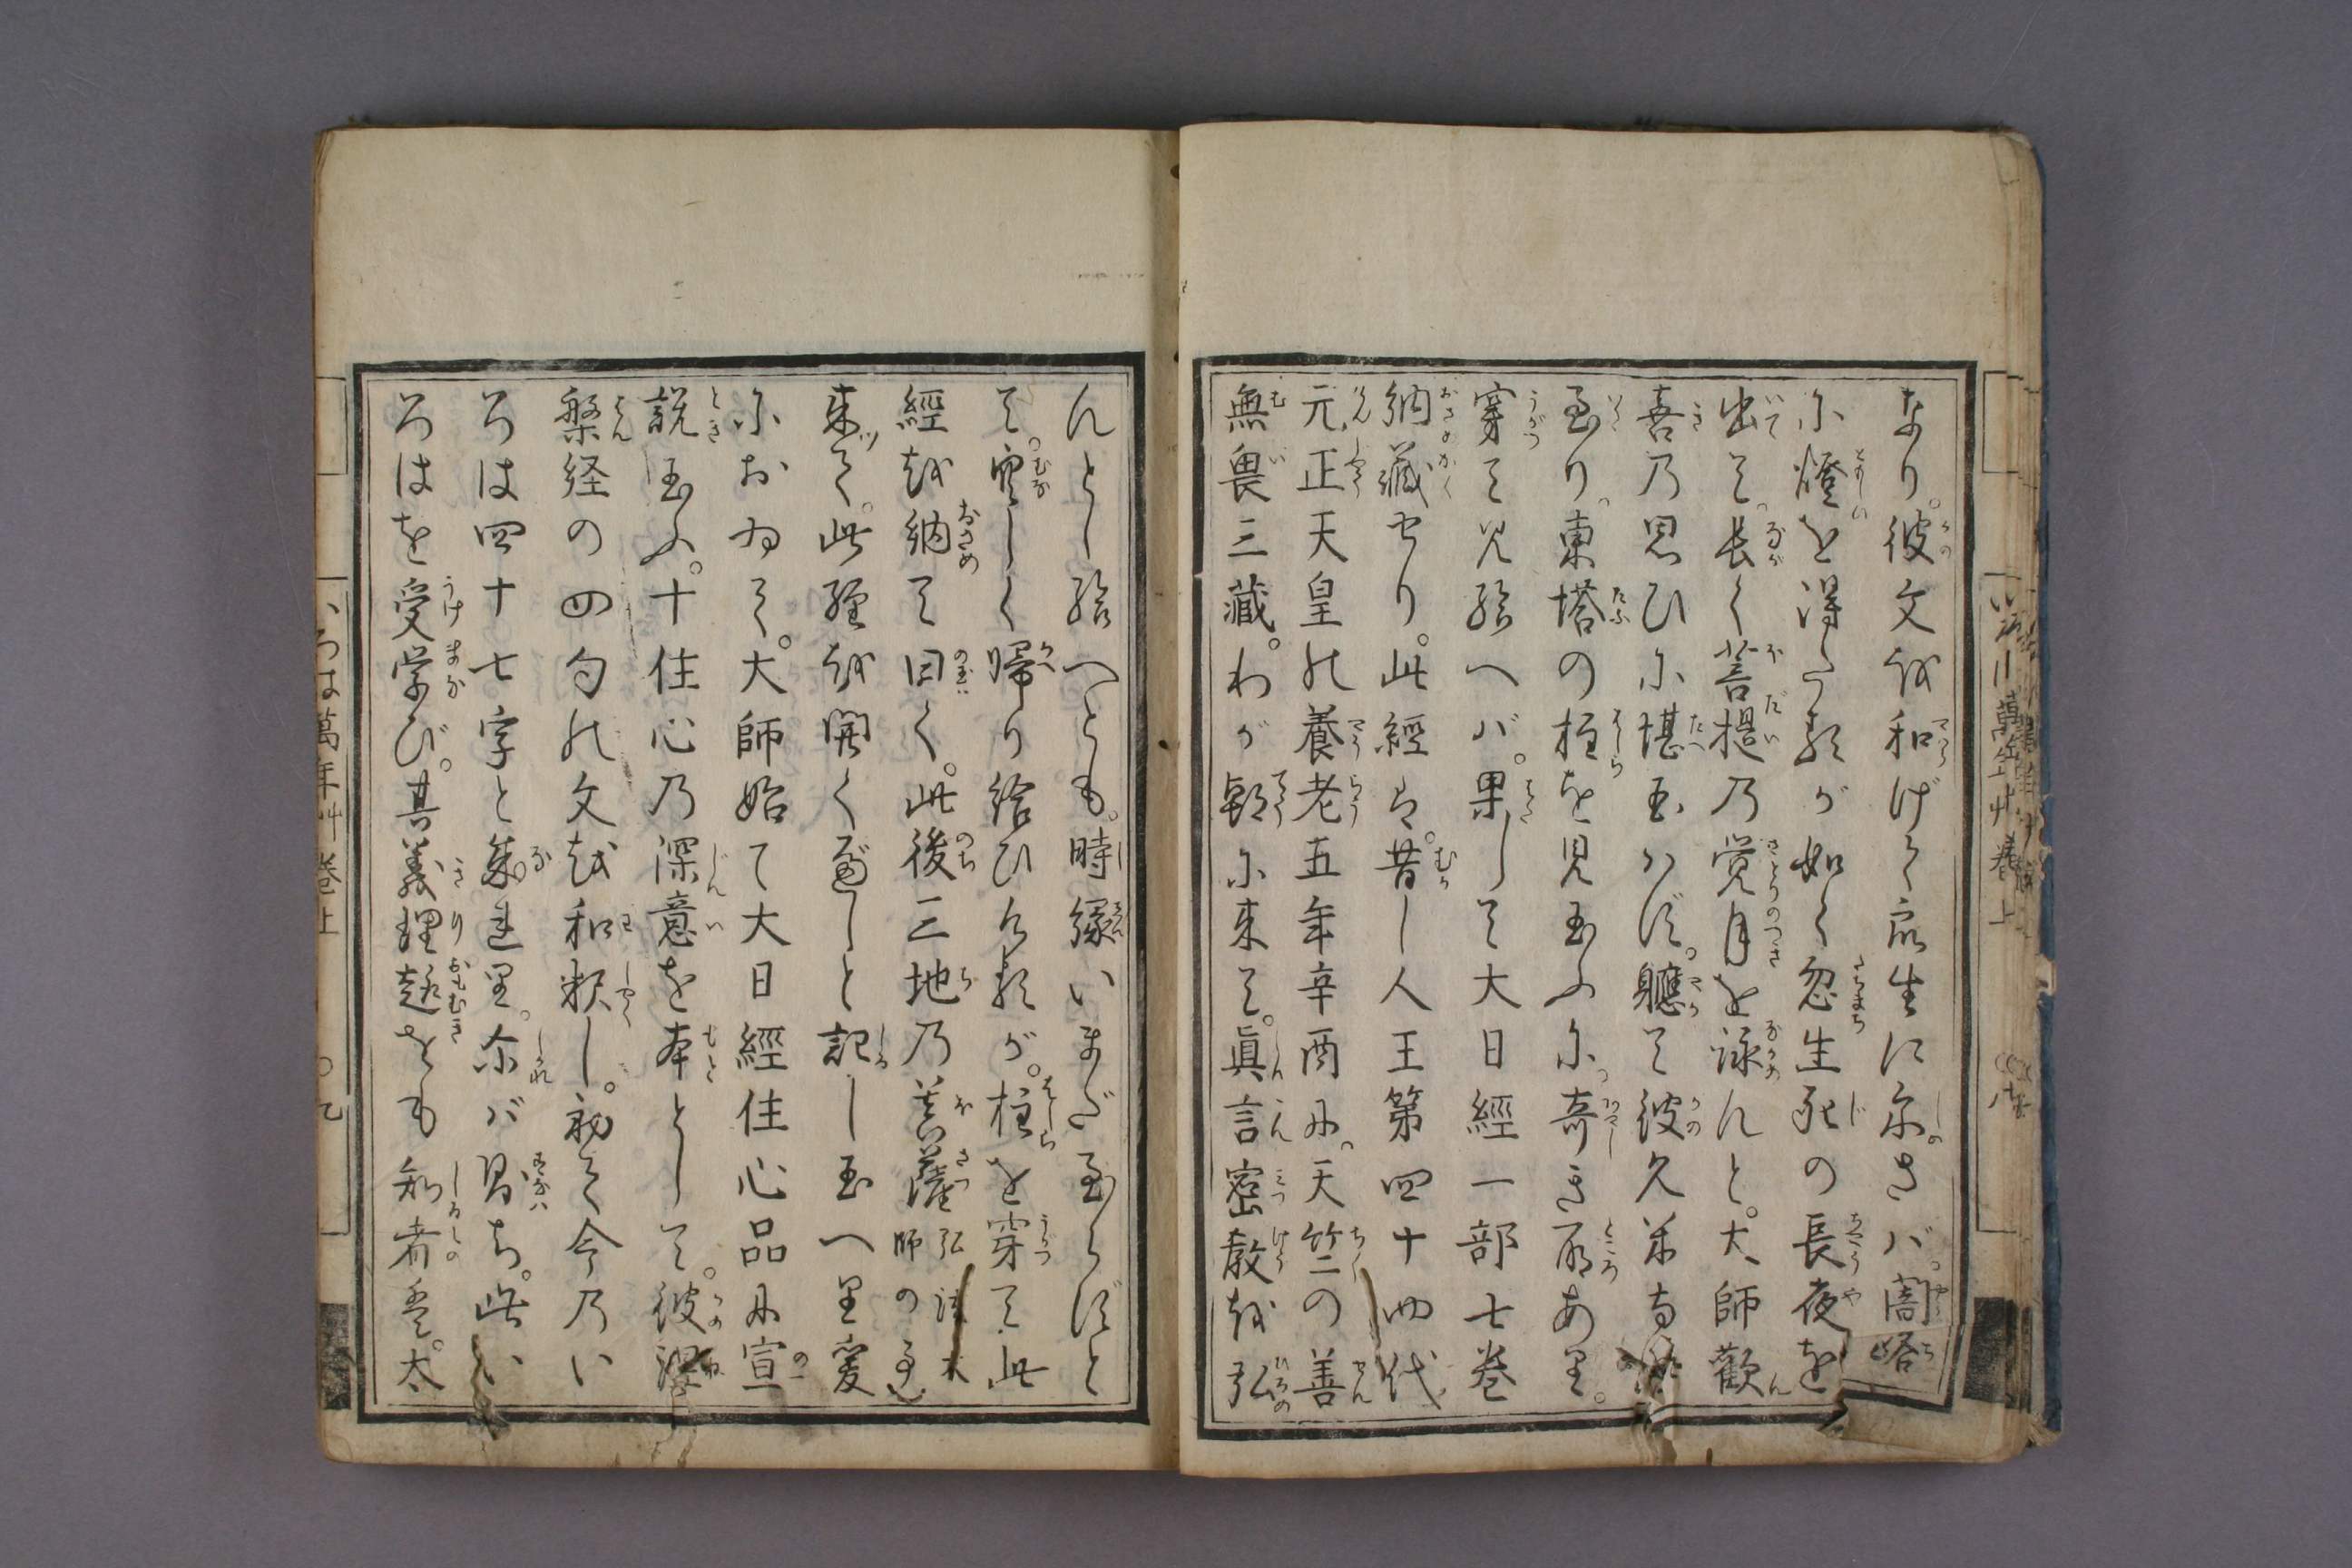 なり。彼文越和げて衆生に示さバ。闇路
に燈を得たるが如く忽生死の長夜を
出て。長く菩提乃覚月を詠んと。大師歓
喜乃思ひに堪玉はず。軈て彼久米寺に
至り。東塔の柱を見玉ふに奇き所あり。
穿て見給へバ。果して大日經一部七巻
納藏せり。此經は。昔し人王第四十四代
元正天皇の養老五年辛酉に。天竺の善
無畏三藏。わが朝に来て。眞言密教越弘
んとし給へども。時縁いまだ至らずと
て。空しく帰り給ひけるが。柱を穿て此
經越納て曰く。此後三地乃菩薩弘法大師の事也
来て。此經越開く べしと記し玉へり爰
におゐて。大師始て大日經住心品に宣
説玉ふ。十住心乃深意を本として。彼涅
槃経の四句の文越和釈し。初て今乃い
ろは四十七字と成れり。尓バ則ち。此い
ろはを受学び。其義理趣をも知者は。大
いろは萬年艸 巻上